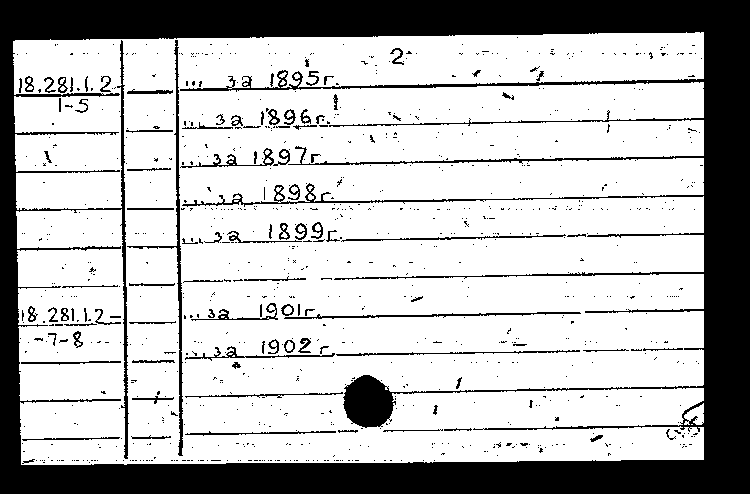 2
18.281.1.2- ... за 1895г.
1-5
... за 1896г.
... за 1897г.
... за 1898г.
... за 1899г.
18.281.1.2- ... за 1901г.
-7-8
... за 1902г.